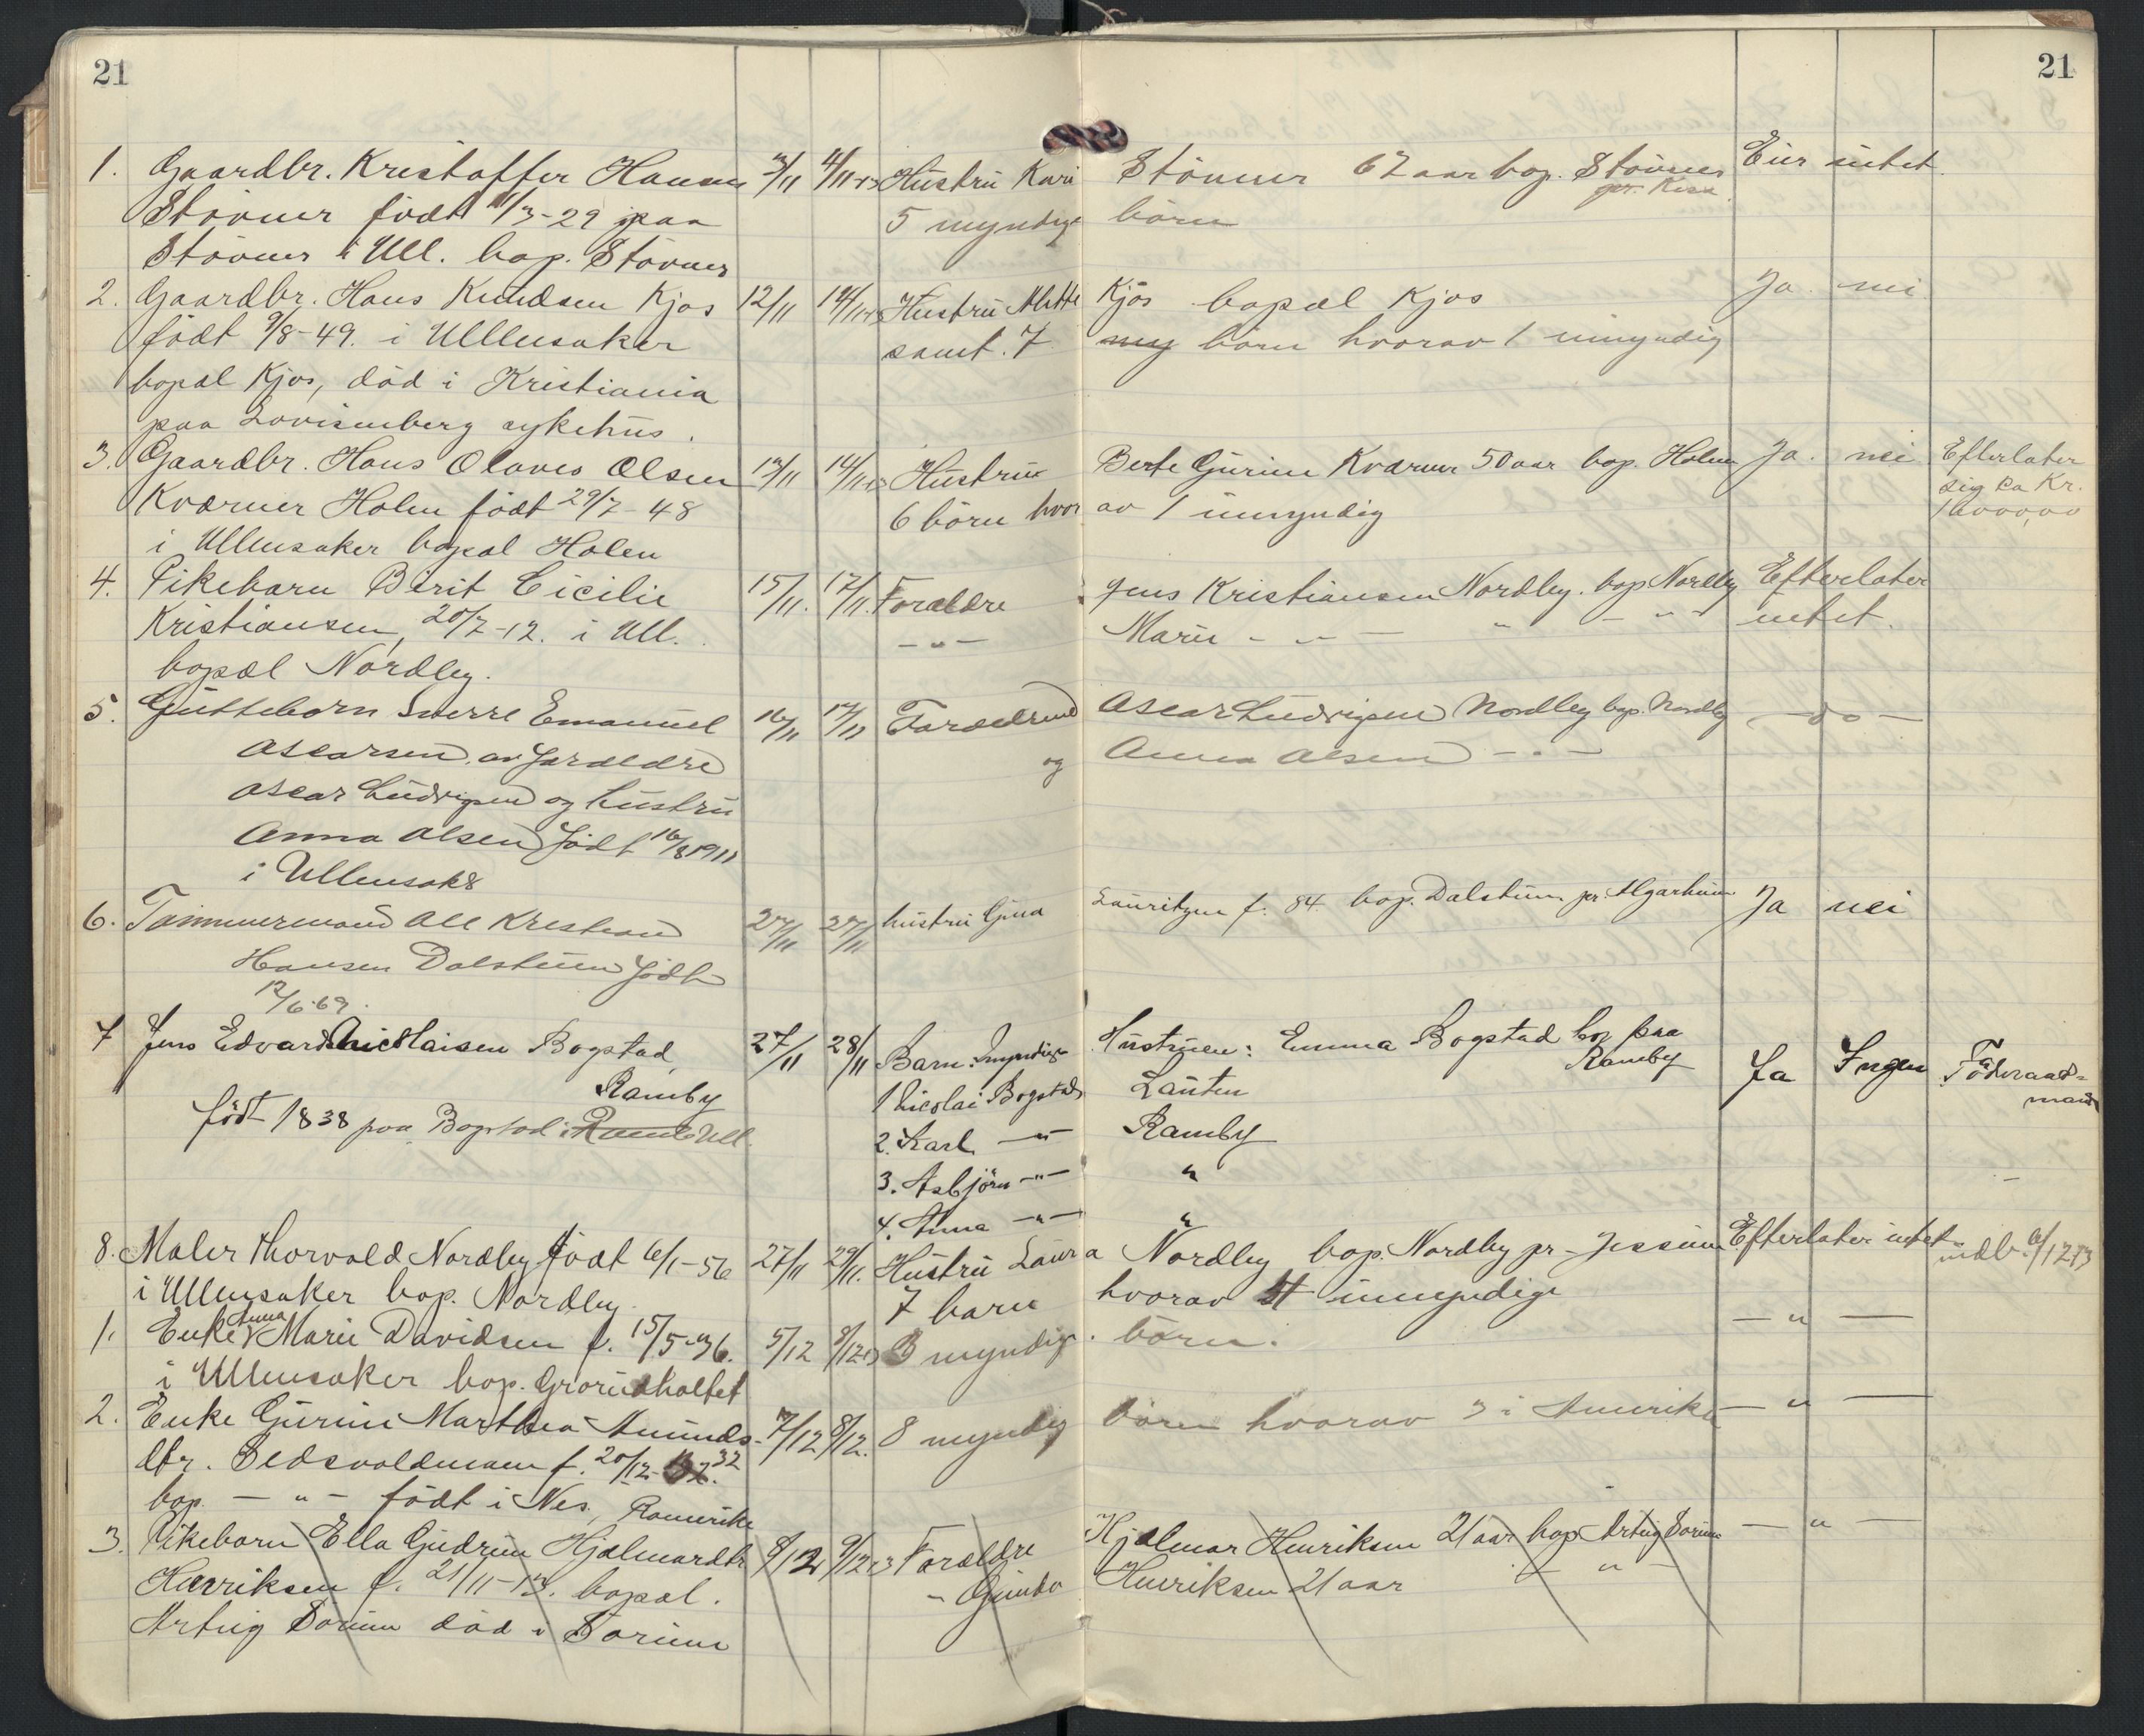 21
21
1. Gaardbr. Kristoffer Hansen 3/11 4/11-13 Hustru Kari Stövner 67 aar bop. Stövner Eier intet.
Stövner födt 11/3-29 paa 5 myndige börn pr. Kisa
Stövner i Ull. bop. Stövner
2. Gaardbr. Hans Knudsen Kjos 12/11 14/11-13 Hustru Mette Kjös bopæl Kjos Ja. nei
födt 9/8-49. i Ullensaker samt. 7 my börn hvorav 1 umyndig
bopæl Kjos, död i Kristiania
paa Lovisenberg sykehus.
3. Gaardbr. Hans Olaves Olsen 13/11 14/11-13 Hustru Berte Gurine Kværner 50 aar bop. Holm Ja. nei Efterlater
Kværner Holm födt 29/7-48 6 börn hvor av 1 umyndig sig ca Kr.
i Ullensaker bopæl Holen
4. Pikebarn Berit Cicilie 15/11. 17/11. Forældre Jens Kristiansen Nordby. bop Nordby Efterlater
Kristiansen, 20/7-12. i Ull. - " - Marie - " - " - " - intet.
bopæl Nordby.
5. Guttebarn Sverre Emanuel 16/11 17/11 Forældrene Oscar Ludvigsen Nordby bop. Nordby - do -
Oscarsen. av forældre og Anna Olsen - " -
Oscar Ludvigsen og hustru
Anna Olsen födt 16/8 1911
i Ullensaker
6. Tømmermand Ole Kristian 27/11 27/11 hustru Gina Lauritzen f. 84. bop. Dalstuen pr. Algarheim Ja nei
Hansen Dalstuen födt
12/6-69.
7 Jens Edvard Nicolaisen Bogstad, 27/11 28/11 Barn: myndige Hustruen: Emma Bogstad bor paa Ja Ingen Föderaads-
Ramby 1 Nicolai Bogstad Lauten Ramby mand
födt 1838 paa Bogstad i Ull. 2. Karl - " - Ramby
3. Asbjörn - " - "
4. Anna - " - "
8. Maler Thorvald Nordby födt 6/1-56 27/11 29/11. Hustru Laura Nordby bop. Nordby pr. Jessum Efterlater intet indb. 6/12 13
i Ullensaker bop. Nordby. 7 barn hvorav umyndige
1. Enke Anna Marie Davidsen f. 15/5-36. 5/12 8/12-13 3 myndige. börn. - " -
i Ullensaker bop. Grorudholtet
2. Enke Gurine Marthea Amunds- 7/12 8/12. 8 myndig börn hvorav 3 i Amerika - " -
dtr. Sedsvoldmoen f. 20/12-32
bop. - " - födt i Nes, Romerike
3. Pikebarn Ella Gudrun Hjalmardtr. 8/12 9/12 13 Forældre Hjalmar Henriksen 21 aar bop Artug Sorum - " -
Henriksen f. 21/11-13. bopæl. - Gunda Henriksen 21 aar - " -
Artug Sorum död i Sorum